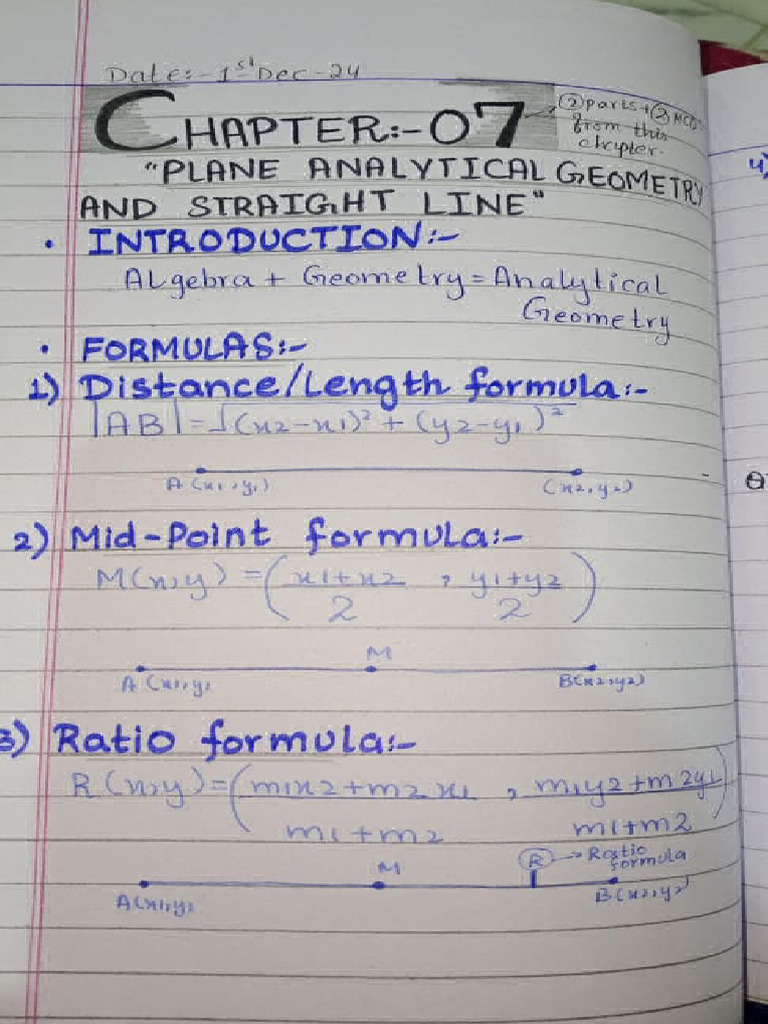 Date:- 1st Dec - 24
CHAPTER:- 07
→ ② parts + ② MCQs
from this
chapter.
"PLANE ANALYTICAL GEOMETRY
AND STRAIGHT LINE"
• INTRODUCTION:-
Algebra + Geometry = Analytical
Geometry
• FORMULAS:-
1) Distance/Length formula:-
|AB| = √(x2-x1)² + (y2-y1)²
A(x1,y1) (x2,y2)
2) Mid-Point formula:-
M(x,y) = (x1+x2 / 2 , y1+y2 / 2)
M
A(x1,y1 B(x2,y2)
3) Ratio formula:-
R(x,y) = (m1x2+m2x1 / m1+m2 , m1y2+m2y1 / m1+m2)
R → Ratio
formula
M
A(x1,y1 B(x2,y2)
4)